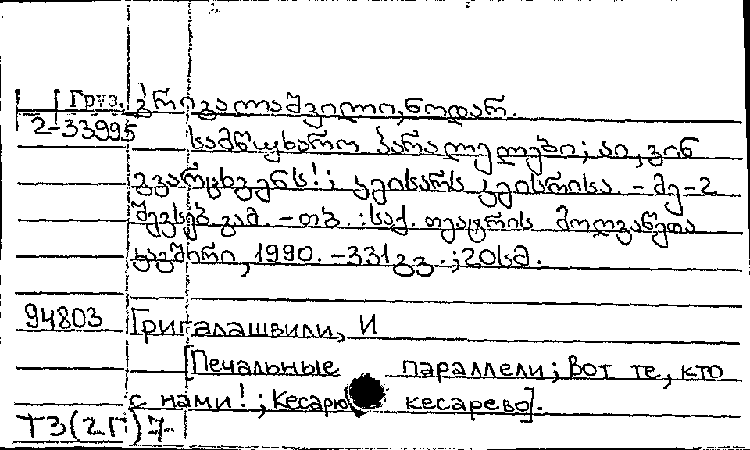 Груз. გრიგალაშვილი, ნოდარ.
2-33995 სამწუხარო პარალელები; აი, ვინ
გვარცხვენს!; კეისარს კეისრისა. - მე-2
შევსებ. გამ. - თბ. : საქ. თეატრის მოღვაწეთა
კავშირი, 1990. - 331 გვ. ; 20 სმ.
94803 Григалашвили, И
[Печальные параллели; Вот те, кто
с нами!; Кесарю кесарево].
Т3(2Г)7